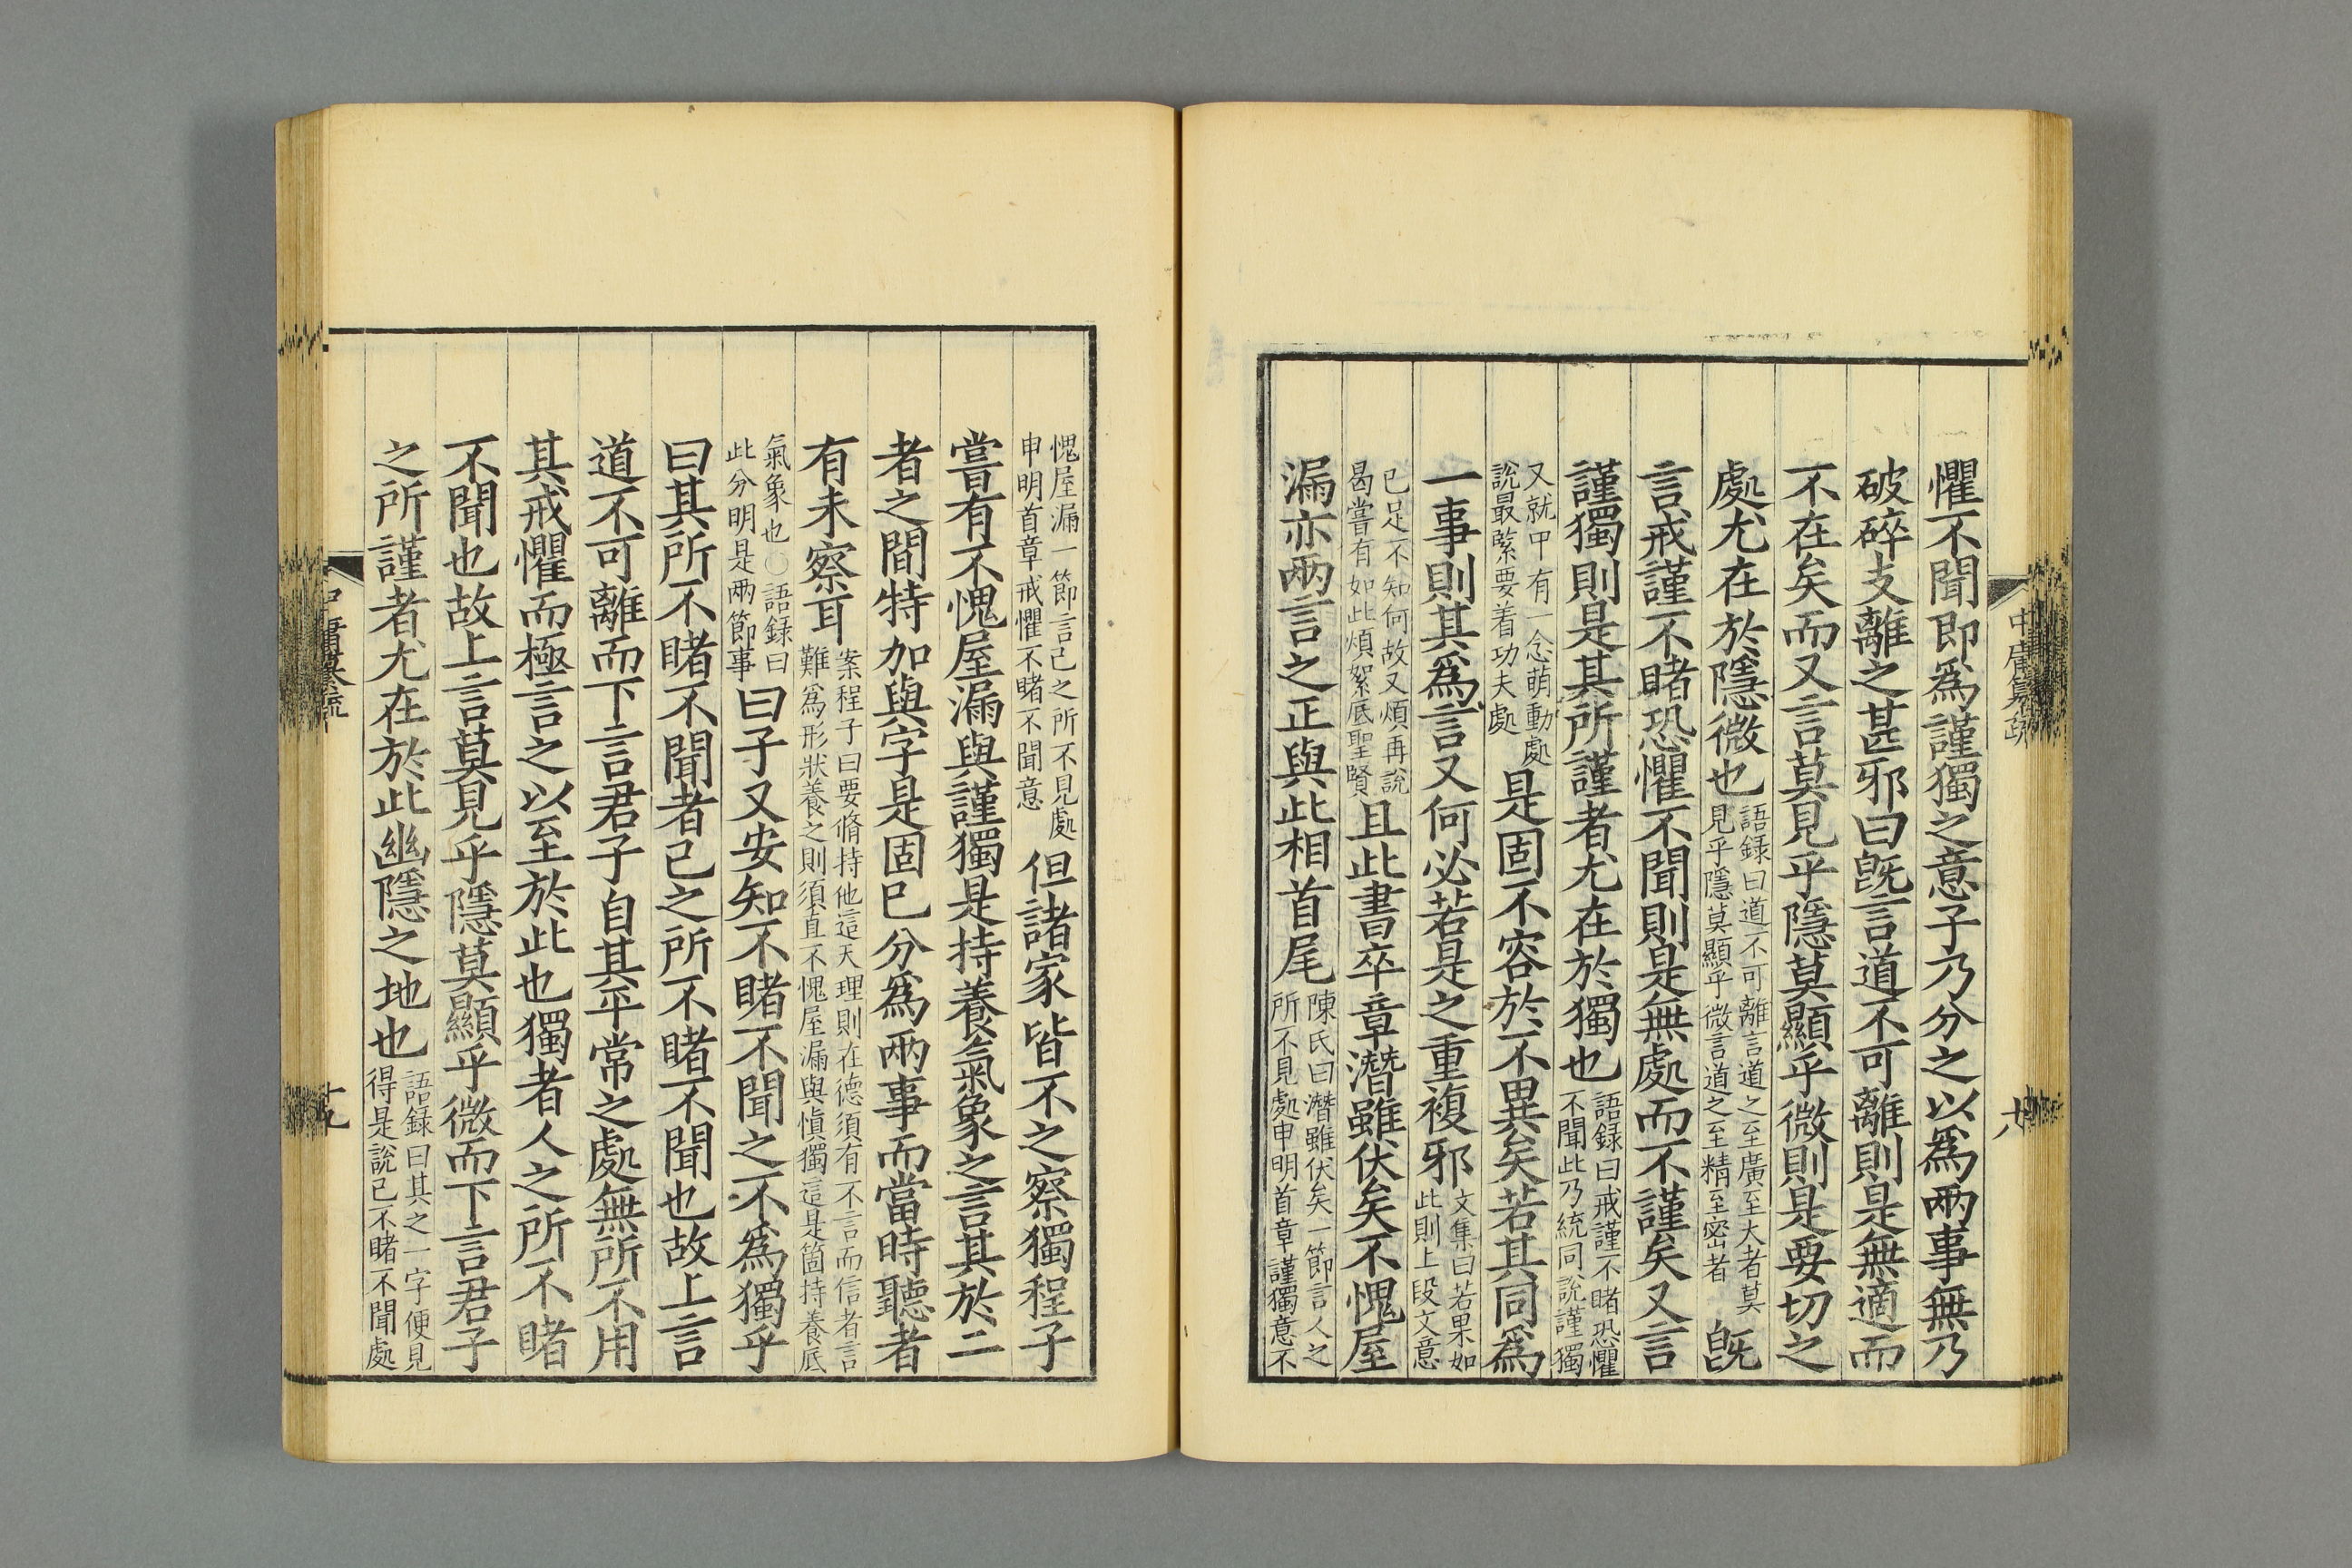 懼不聞即爲謹獨之意子乃分之以爲兩事無乃
破碎支離之甚邪曰旣言道不可離則是無適而
不在矣而又言莫見乎隱莫顯乎微則是要切之
處尤在於隱微也語録曰道不可離言道之至廣至大者莫見乎隱莫顯乎微言道之至精至密者旣
言戒謹不睹恐懼不聞則是無處而不謹矣又言
謹獨則是其所謹者尤在於獨也語録曰戒謹不睹恐懼不聞此乃統同說謹獨
又就中有一念萌動處說最緊要着功夫處是固不容於不異矣若其同爲
一事則其爲言又何必若是之重複邪文集曰若果如此則上段文意
已足不知何故又煩再說曷嘗有如此煩絮底聖賢且此書卒章潛雖伏矣不愧屋
漏亦兩言之正與此相首尾陳氏曰潛雖伏矣一節言人之所不見處申明首章謹獨意不
愧屋漏一節言己之所不見處申明首章戒懼不睹不聞意但諸家皆不之察獨程子
嘗有不愧屋漏與謹獨是持養氣象之言其於二
者之間特加與字是固已分爲兩事而當時聽者
有未察耳案程子曰要脩持他這天理則在德須有不言而信者言難爲形狀養之則須直不愧屋漏與愼獨這是箇持養底
氣象也○語録曰此分明是兩節事曰子又安知不睹不聞之不爲獨乎
曰其所不睹不聞者己之所不睹不聞也故上言
道不可離而下言君子自其平常之處無所不用
其戒懼而極言之以至於此也獨者人之所不睹
不聞也故上言莫見乎隱莫顯乎微而下言君子
之所謹者尤在於此幽隱之地也語録曰其之一字便見得是說己不睹不聞處
中庸纂疏
十九